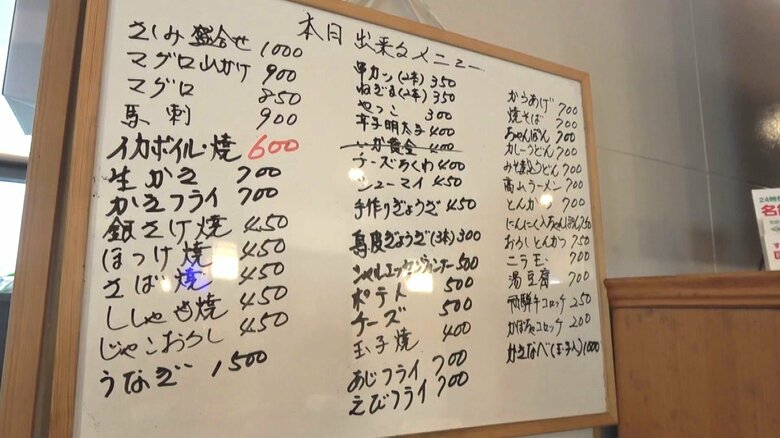 本日出来るメニュー
さしみ盛合せ 1000
マグロ山かけ 900
マグロ 850
馬刺 900
イカボイル・焼 600
生かき 700
かきフライ 700
銀さけ焼 450
ほっけ焼 450
さば焼 450
ししゃも焼 450
じゃこおろし 450
うなぎ 1500
串カツ(2本) 350
ねぎま(2本) 350
やっこ 300
辛子明太子 400
いか黄金 400
チーズちくわ 400
シューマイ 450
手作りぎょうざ 450
鳥皮ぎょうざ(3本) 300
シャルエッセンウインナー 500
ポテト 500
チーズ 500
玉子焼 400
あじフライ 700
えびフライ 700
からあげ 700
焼そば 700
ちゃんぽん 700
カレーうどん 700
みそ煮込うどん 700
高山ラーメン 700
とんかつ 700
にんにく入ちゃんぽん 750
おろしとんかつ 750
ニラ玉 700
湯豆腐 700
飛騨牛コロッケ 250
かぼちゃコロッケ 200
かきなべ(玉子入) 1000
24時